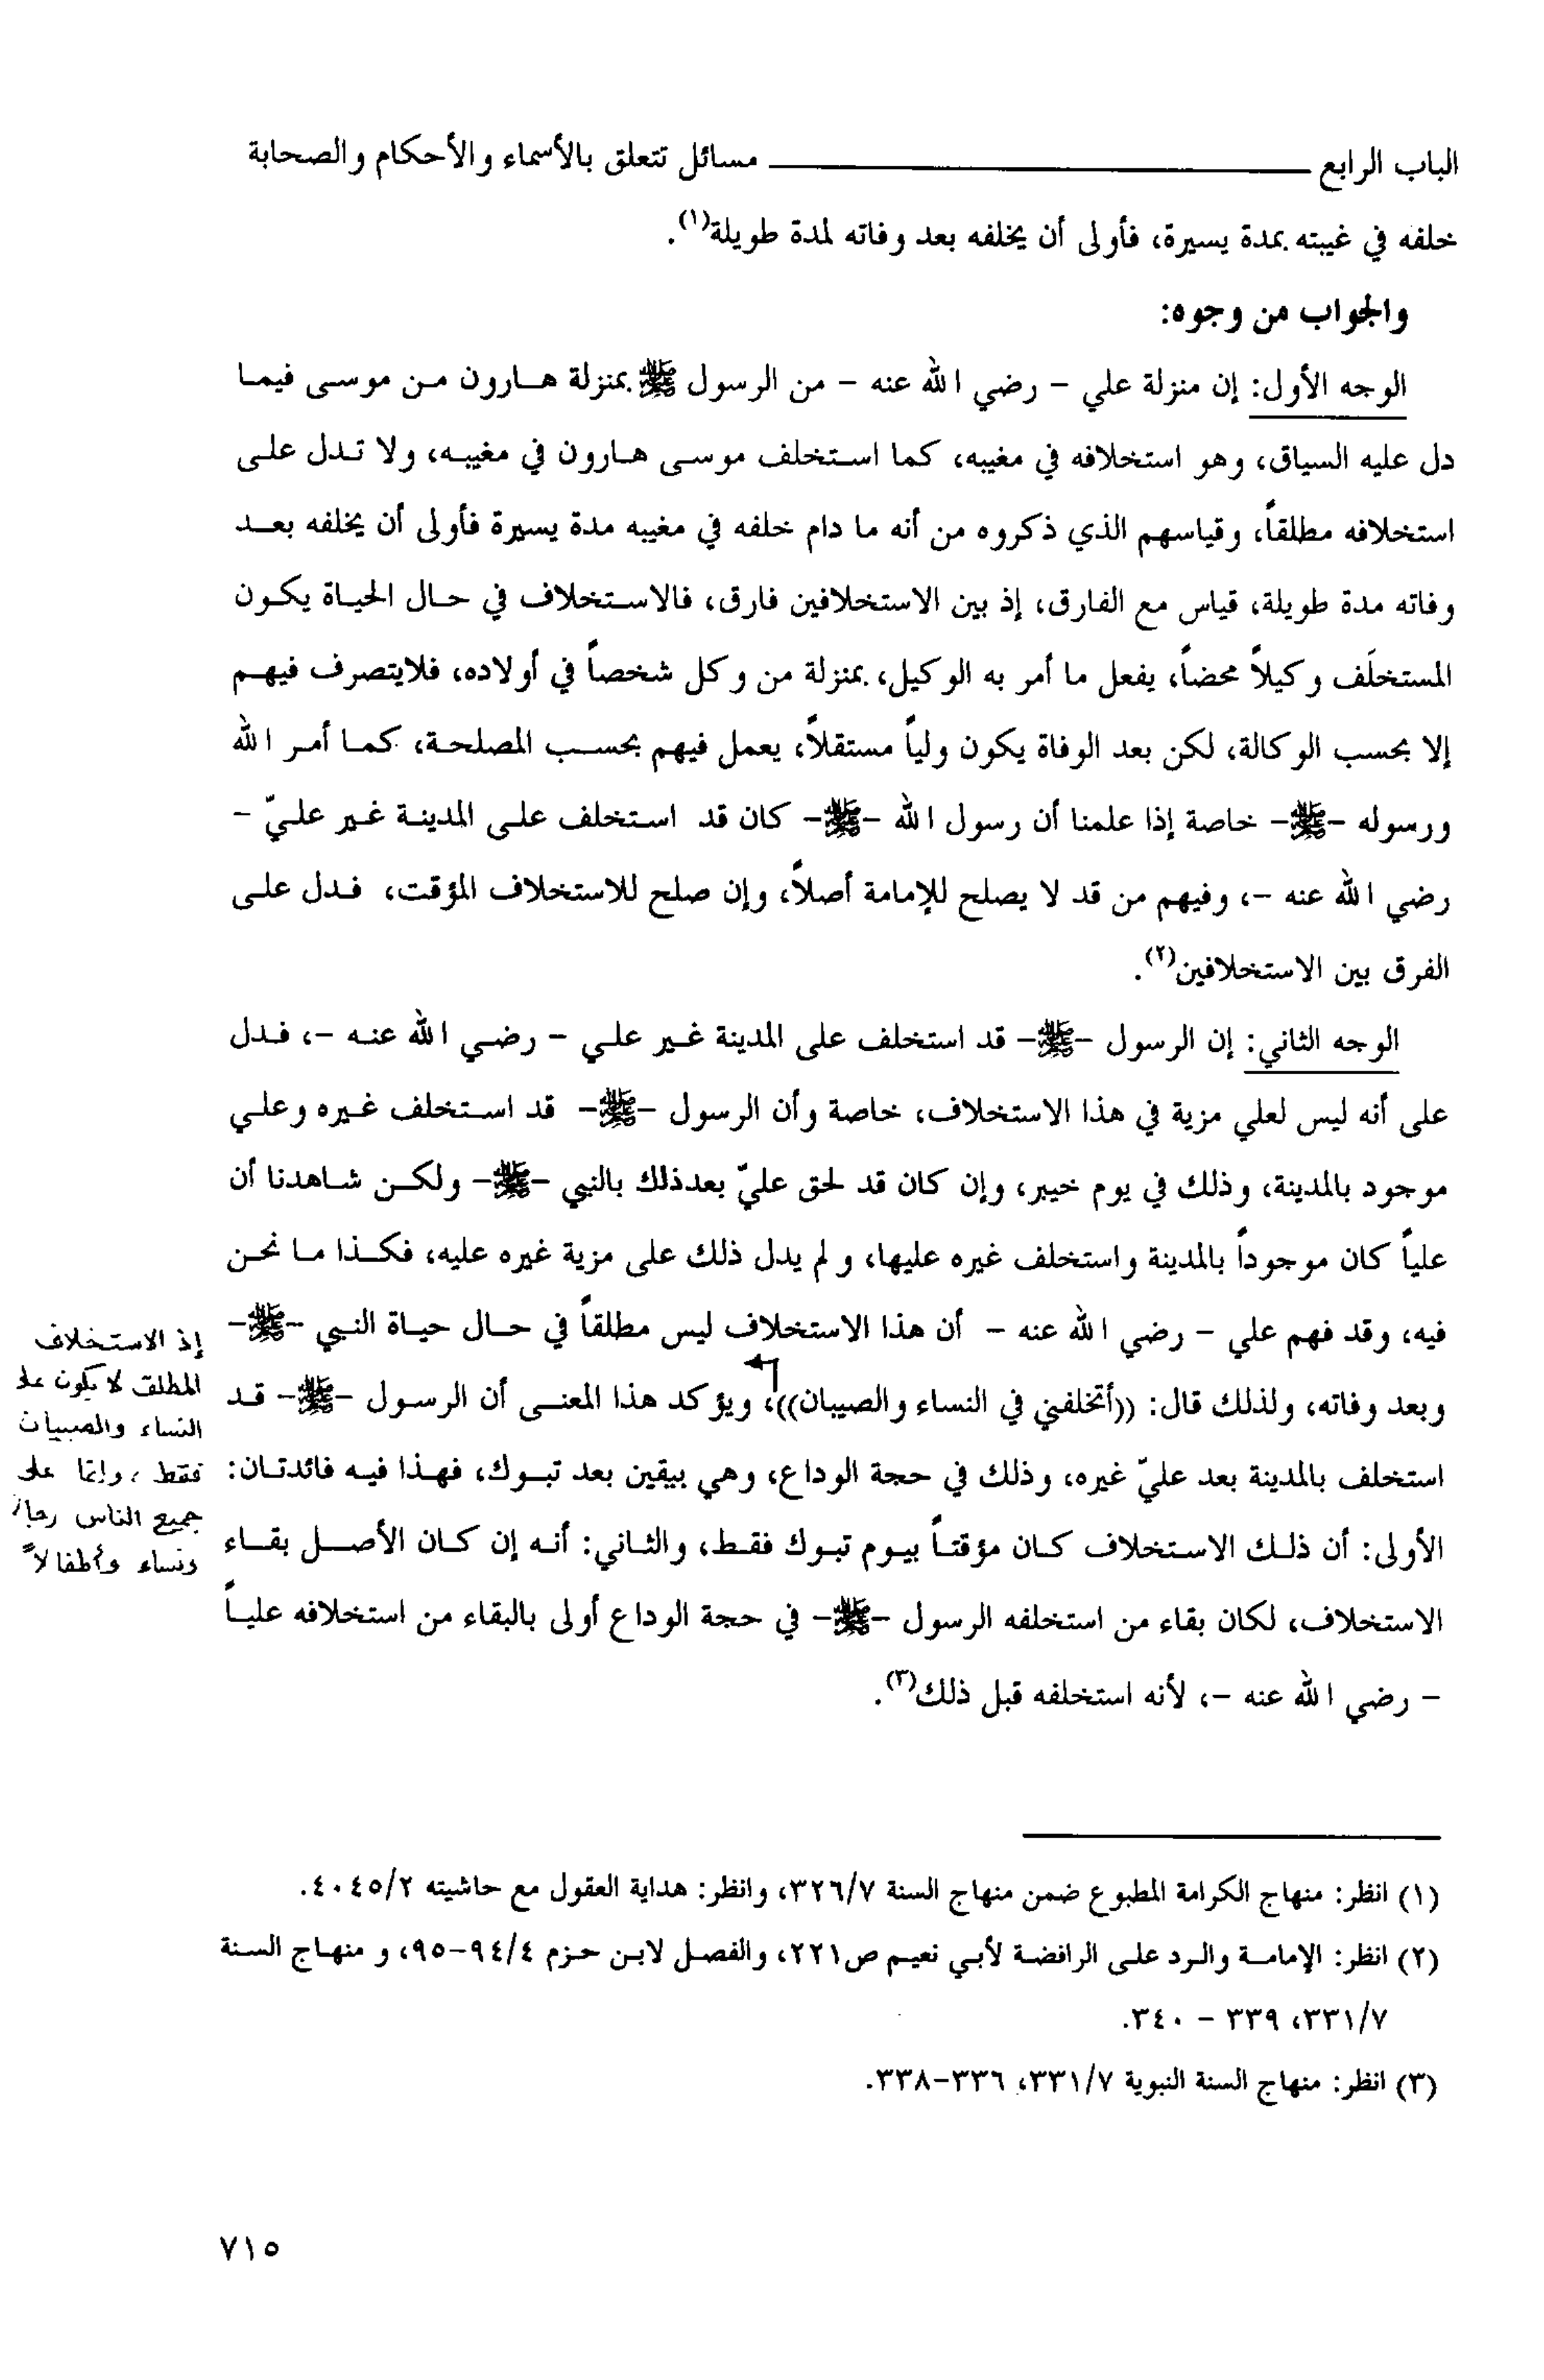 الباب الرابع ــــــــــ مسائل تتعلق بالأسماء والأحكام والصحابة
خلفه في غيبته بمدة يسيرة، فأولى أن يخلفه بعد وفاته لمدة طويلة(١).
والجواب من وجوه:
الوجه الأول: إن منزلة علي - رضي الله عنه - من الرسول ﷺ بمنزلة هارون من موسى فيما
دل عليه السياق، وهو استخلافه في مغيبه، كما استخلف موسى هارون في مغيبه، ولا تدل على
استخلافه مطلقاً، وقياسهم الذي ذكروه من أنه ما دام خلفه في مغيبه مدة يسيرة فأولى أن يخلفه بعد
وفاته مدة طويلة، قياس مع الفارق، إذ بين الاستخلافين فارق، فالاستخلاف في حال الحياة يكون
المستخلَف وكيلاً محضاً، يفعل ما أمر به الوكيل، بمنزلة من وكل شخصاً في أولاده، فلايتصرف فيهم
إلا بحسب الوكالة، لكن بعد الوفاة يكون ولياً مستقلاً، يعمل فيهم بحسب المصلحة، كما أمر الله
ورسوله -ﷺ- خاصة إذا علمنا أن رسول الله -ﷺ- كان قد استخلف على المدينة غير عليّ -
رضي الله عنه -، وفيهم من قد لا يصلح للإمامة أصلاً، وإن صلح للاستخلاف المؤقت، فدل على
الفرق بين الاستخلافين(٢).
الوجه الثاني: إن الرسول -ﷺ- قد استخلف على المدينة غير علي - رضي الله عنه -، فدل
على أنه ليس لعلي مزية في هذا الاستخلاف، خاصة وأن الرسول -ﷺ- قد استخلف غيره وعلي
موجود بالمدينة، وذلك في يوم خيبر، وإن كان قد لحق عليّ بعدذلك بالنبي -ﷺ- ولكن شاهدنا أن
علياً كان موجوداً بالمدينة واستخلف غيره عليها، ولم يدل ذلك على مزية غيره عليه، فكذا ما نحن
فيه، وقد فهم علي - رضي الله عنه - أن هذا الاستخلاف ليس مطلقاً في حال حياة النبي -ﷺ-
وبعد وفاته، ولذلك قال: ((أتخلفني في النساء والصبيان))، ويؤكد هذا المعنى أن الرسول -ﷺ- قد
استخلف بالمدينة بعد عليّ غيره، وذلك في حجة الوداع، وهي بيقين بعد تبوك، فهذا فيه فائدتان:
الأولى: أن ذلك الاستخلاف كان مؤقتاً بيوم تبوك فقط، والثاني: أنه إن كان الأصل بقاء
الاستخلاف، لكان بقاء من استخلفه الرسول -ﷺ- في حجة الوداع أولى بالبقاء من استخلافه علياً
- رضي الله عنه -، لأنه استخلفه قبل ذلك(٣).
إذ الاستخلاف
المطلق لا يكون على
النساء والصبيان
فقط، وإنما على
جميع الناس رجالاً
ونساء وأطفالاً
(١) انظر: منهاج الكرامة المطبوع ضمن منهاج السنة ٣٢٦/٧، وانظر: هداية العقول مع حاشيته ٤٠٤٥/٢.
(٢) انظر: الإمامة والرد على الرافضة لأبي نعيم ص٢٢١، والفصل لابن حزم ٩٤/٤-٩٥، و منهاج السنة
٣٣١/٧، ٣٣٩ - ٣٤٠.
(٣) انظر: منهاج السنة النبوية ٣٣١/٧، ٣٣٦-٣٣٨.
٧١٥